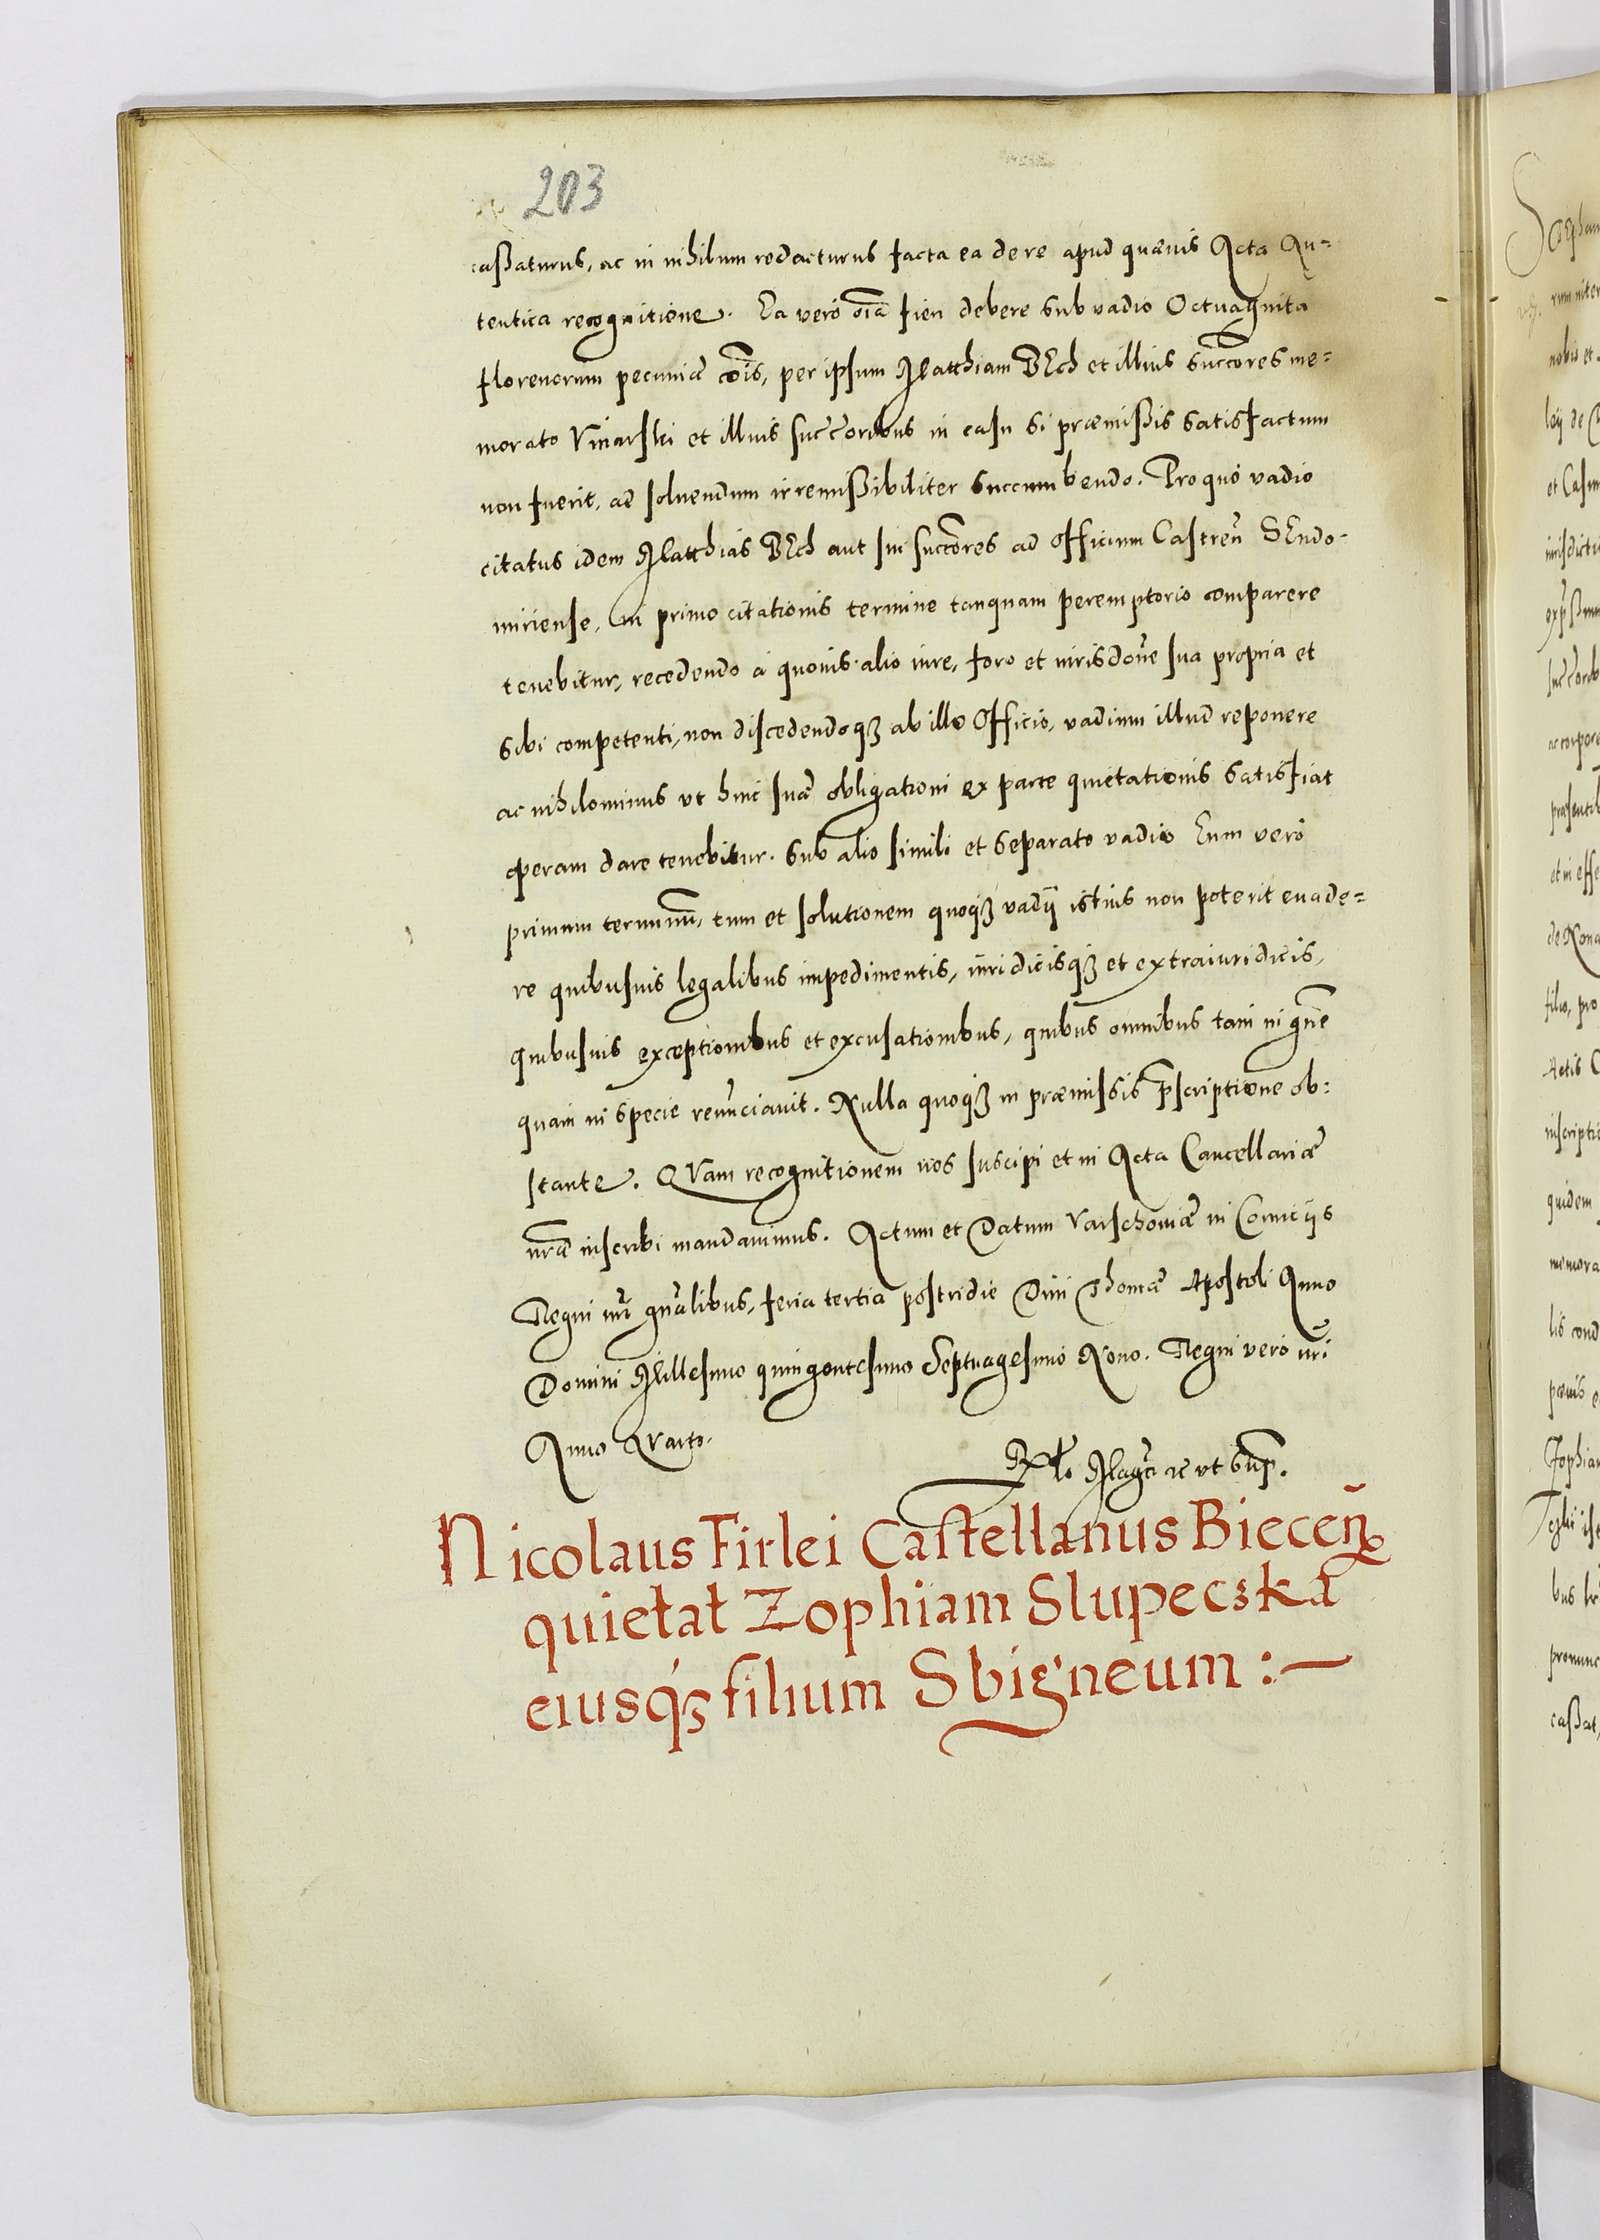 203
caßaturus, ac in nihilum redacturus facta ea de re apud quævis Acta Au=
tentica recognitione. Ea vero oīa fieri debere sub vadio Octuaginta
florenorum pecuniæ cōis, per ipsum Matthiam BEch et illius succōres me=
morato Viniarski et illius succ̄oribus in casu si præmißis satisfactum
non fuerit, ad soluendum irremißibiliter succumbendo. Pro quo vadio
citatus idem Matthias BEch aut sui succōres ad officium Castreñ SEndo-
miriense, in primo citationis termine tanquam peremptorio comparere
tenebitur, recedendo à quouis alio iure, foro et iurisdōne sua propria et
sibi competenti, non discedendoqȝ ab illo Officio, vadium illud reponere
ac nihilominus vt huic suæ obligationi ex parte quietationis satisfiat
operam dare tenebitur. Sub alio simili et separato vadio Eum vero
primum terminū, tum et solutionem quoqȝ vadij istius non poterit euade=
re quibusuis legalibus impedimentis, iuridicisqȝ et extraiuridicis,
quibusuis exceptionibus et excusationibus, quibus omnibus tam in gñe
quam in specie renūciauit. Nulla quoqȝ in præmissis p̄scriptione ob=
stante. QVam recognitionem nos suscipi et in Acta Cancellariæ
nr̄æ inscribi mandauimus. Actum et Datum Varschouiæ in Comicijs
Regni nr̄i gn̄alibus, feria tertia postridie Diui Thomæ Apostoli Anno
Domini Millesimo quingentesimo Septuagesimo Nono. Regni vero nr̄i
Anno QVarto.
Rłło Magcī æ vt sup̄.
Nicolaus Firlei Castellanus Bieceñ
quietat Zophiam Slupecskā
eiusqȝ filium Sbigneum :—